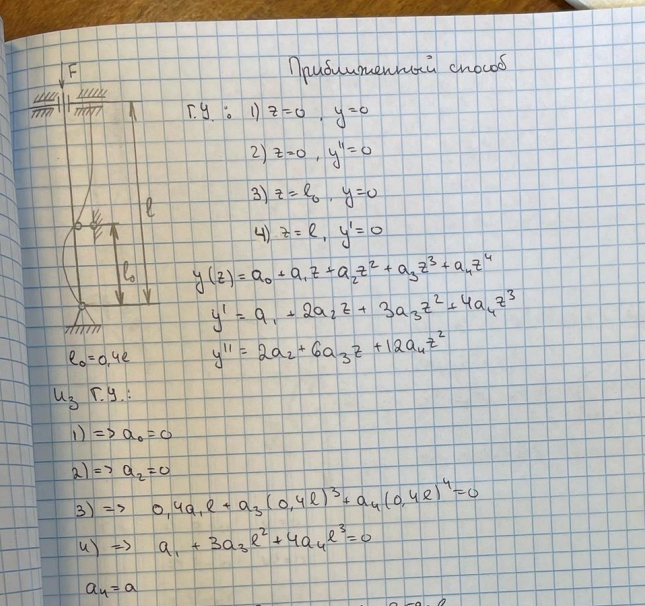 Приближенный способ
F
Г.У.: 1) z=0, y=0
2) z=0, y''=0
3) z=l₀, y=0
4) z=l, y'=0
l
l₀
y(z)=a₀+a₁z+a₂z²+a₃z³+a₄z⁴
y'=a₁+2a₂z+3a₃z²+4a₄z³
y''=2a₂+6a₃z+12a₄z²
l₀=0,4l
Из Г.У.:
1) => a₀=0
2) => a₂=0
3) => 0,4a₁l+a₃(0,4l)³+a₄(0,4l)⁴=0
4) => a₁+3a₃l²+4a₄l³=0
a₄=a